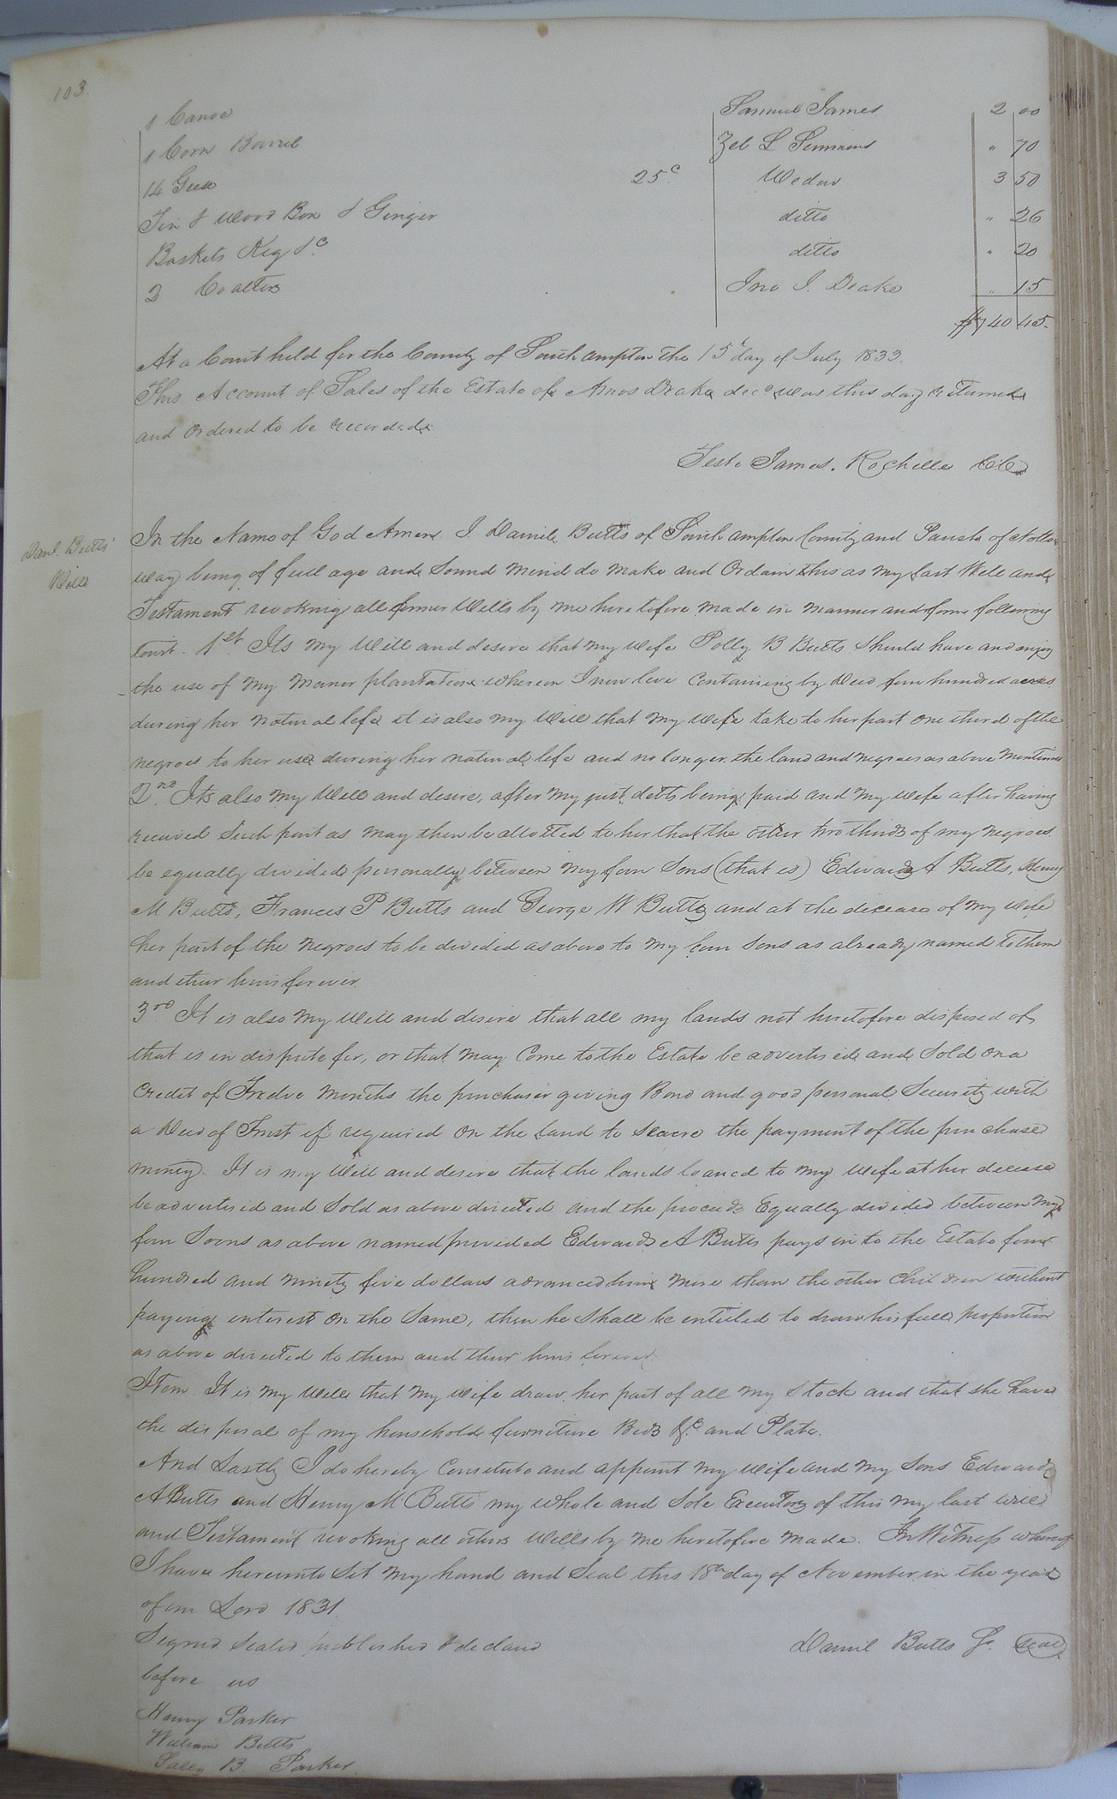 103
1 Canoe Samuel James 2 00
1 Corn Barrel Zeb L Simmons " 70
14 Geese 25c Widow 3 50
Tin & Wood Box & Ginger ditto " 26
Baskets Keg &c ditto " 20
2 Coalters Jno I. Drake " 15
40 45
At a Court held for the County of Southampton the 15th day of July 1833.
This Account of Sales of the Estate of Amos Drake decd was this day returned
and ordered to be recorded
Teste James Rochelle CC
Danl. Butts'
Will
In the Name of God Amen I Daniel Butts of Southampton County and Parish of Notto-
way being of full age and Sound mind do make and Ordain this as my last Will and
Testament revoking all former Wills by me heretofore made in manner and form following
towit. 1st Its my Will and desire that my wife Polly B Butts Should have and enjoy
the use of my manor plantation wherein I now live Containing by Deed four hundred acres
during her natural life it is also my Will that my wife take to her part one third of the
negroes to her use during her natural life and no longer the land and negroes as above mentioned
2nd. Its also my Will and desire, after my just debts being paid and my wife after having
received Such part as may then be allotted to her that the other two thirds of my negroes
be equally divided personally between my four Sons (that is) Edward A Butts, Henry
M Butts, Frances P Butts and George W Butts and at the decease of my Wife
her part of the negroes to be divided as above to my four Sons as already named to them
and their heirs forever
3rd It is also my Will and desire that all my lands not heretofore disposed of
that is in dispute for, or that may Come to the Estate be advertised and Sold on a
Credit of Twelve months the purchaser giving Bond and good personal Security with
a Deed of Trust if required on the Land to Secure the payment of the purchase
money. It is my Will and desire that the lands loaned to my Wife at her decease
be advertised and Sold as above directed and the proceeds Equally divided between my
four Soons as above named provided Edward A Butts pays in to the Estate four
hundred and ninety five dollars advanced him more than the other Children without
paying interest on the Same, then he Shall be entitled to draw his full proportion
as above directed to them and their heirs forever
Item It is my Will that my wife draw her part of all my Stock and that she have
the disposal of my household furniture Beds &c and Plate.
And Lastly I do hereby Constitute and appoint my wife and my Sons Edward
A Butts and Henry M Butts my whole and Sole Executors of this my last will
and Testament revoking all others Wills by me heretofore made. In Witness whereof
I have hereunto Set my hand and Seal this 18th day of November in the year
of our Lord 1831
Signed Sealed published & declard Daniel Butts Sr. Seal
before us
Henry Parker
William Butts
Salley B. Parker